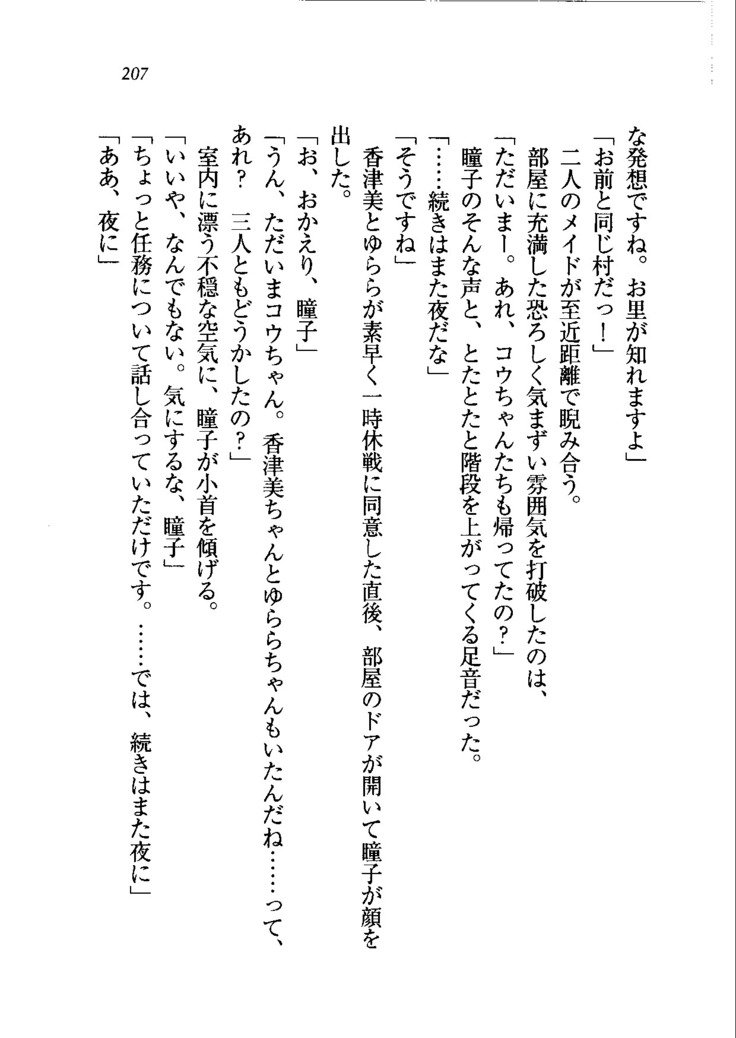 207
な発想ですね。お里が知れますよ」
「お前と同じ村だっ!」
二人のメイドが至近距離で睨み合う。
部屋に充満した恐ろしく気まずい雰囲気を打破したのは、
「ただいまー。あれ、コウちゃんたちも帰ってたの?」
瞳子のそんな声と、とたとたと階段を上がってくる足音だった。
「……続きはまた夜だな」
「そうですね」
香津美とゆららが素早く一時休戦に同意した直後、部屋のドアが開いて瞳子が顔を
出した。
「お、おかえり、瞳子」
「うん、ただいまコウちゃん。香津美ちゃんとゆららちゃんもいたんだね……って、
あれ? 三人ともどうかしたの?」
室内に漂う不穏な空気に、瞳子が小首を傾げる。
「いいや、なんでもない。気にするな、瞳子」
「ちょっと任務について話し合っていただけです。……では、続きはまた夜に」
「ああ、夜に」